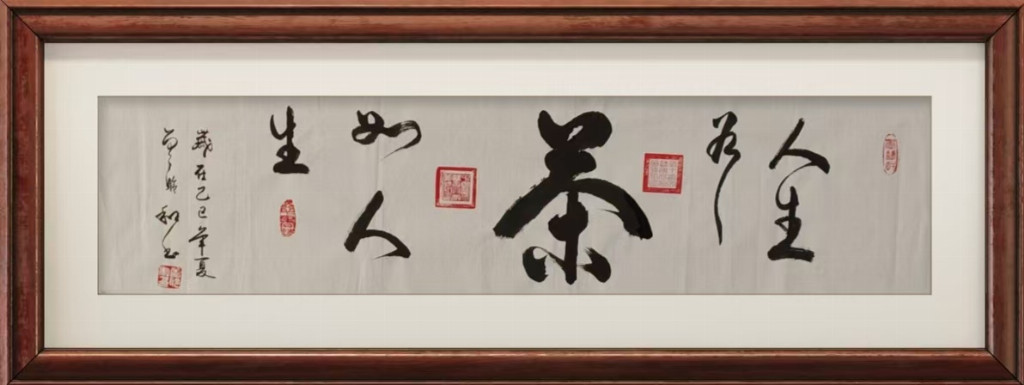 人生
若
茶
如人
生
歲在乙巳年夏